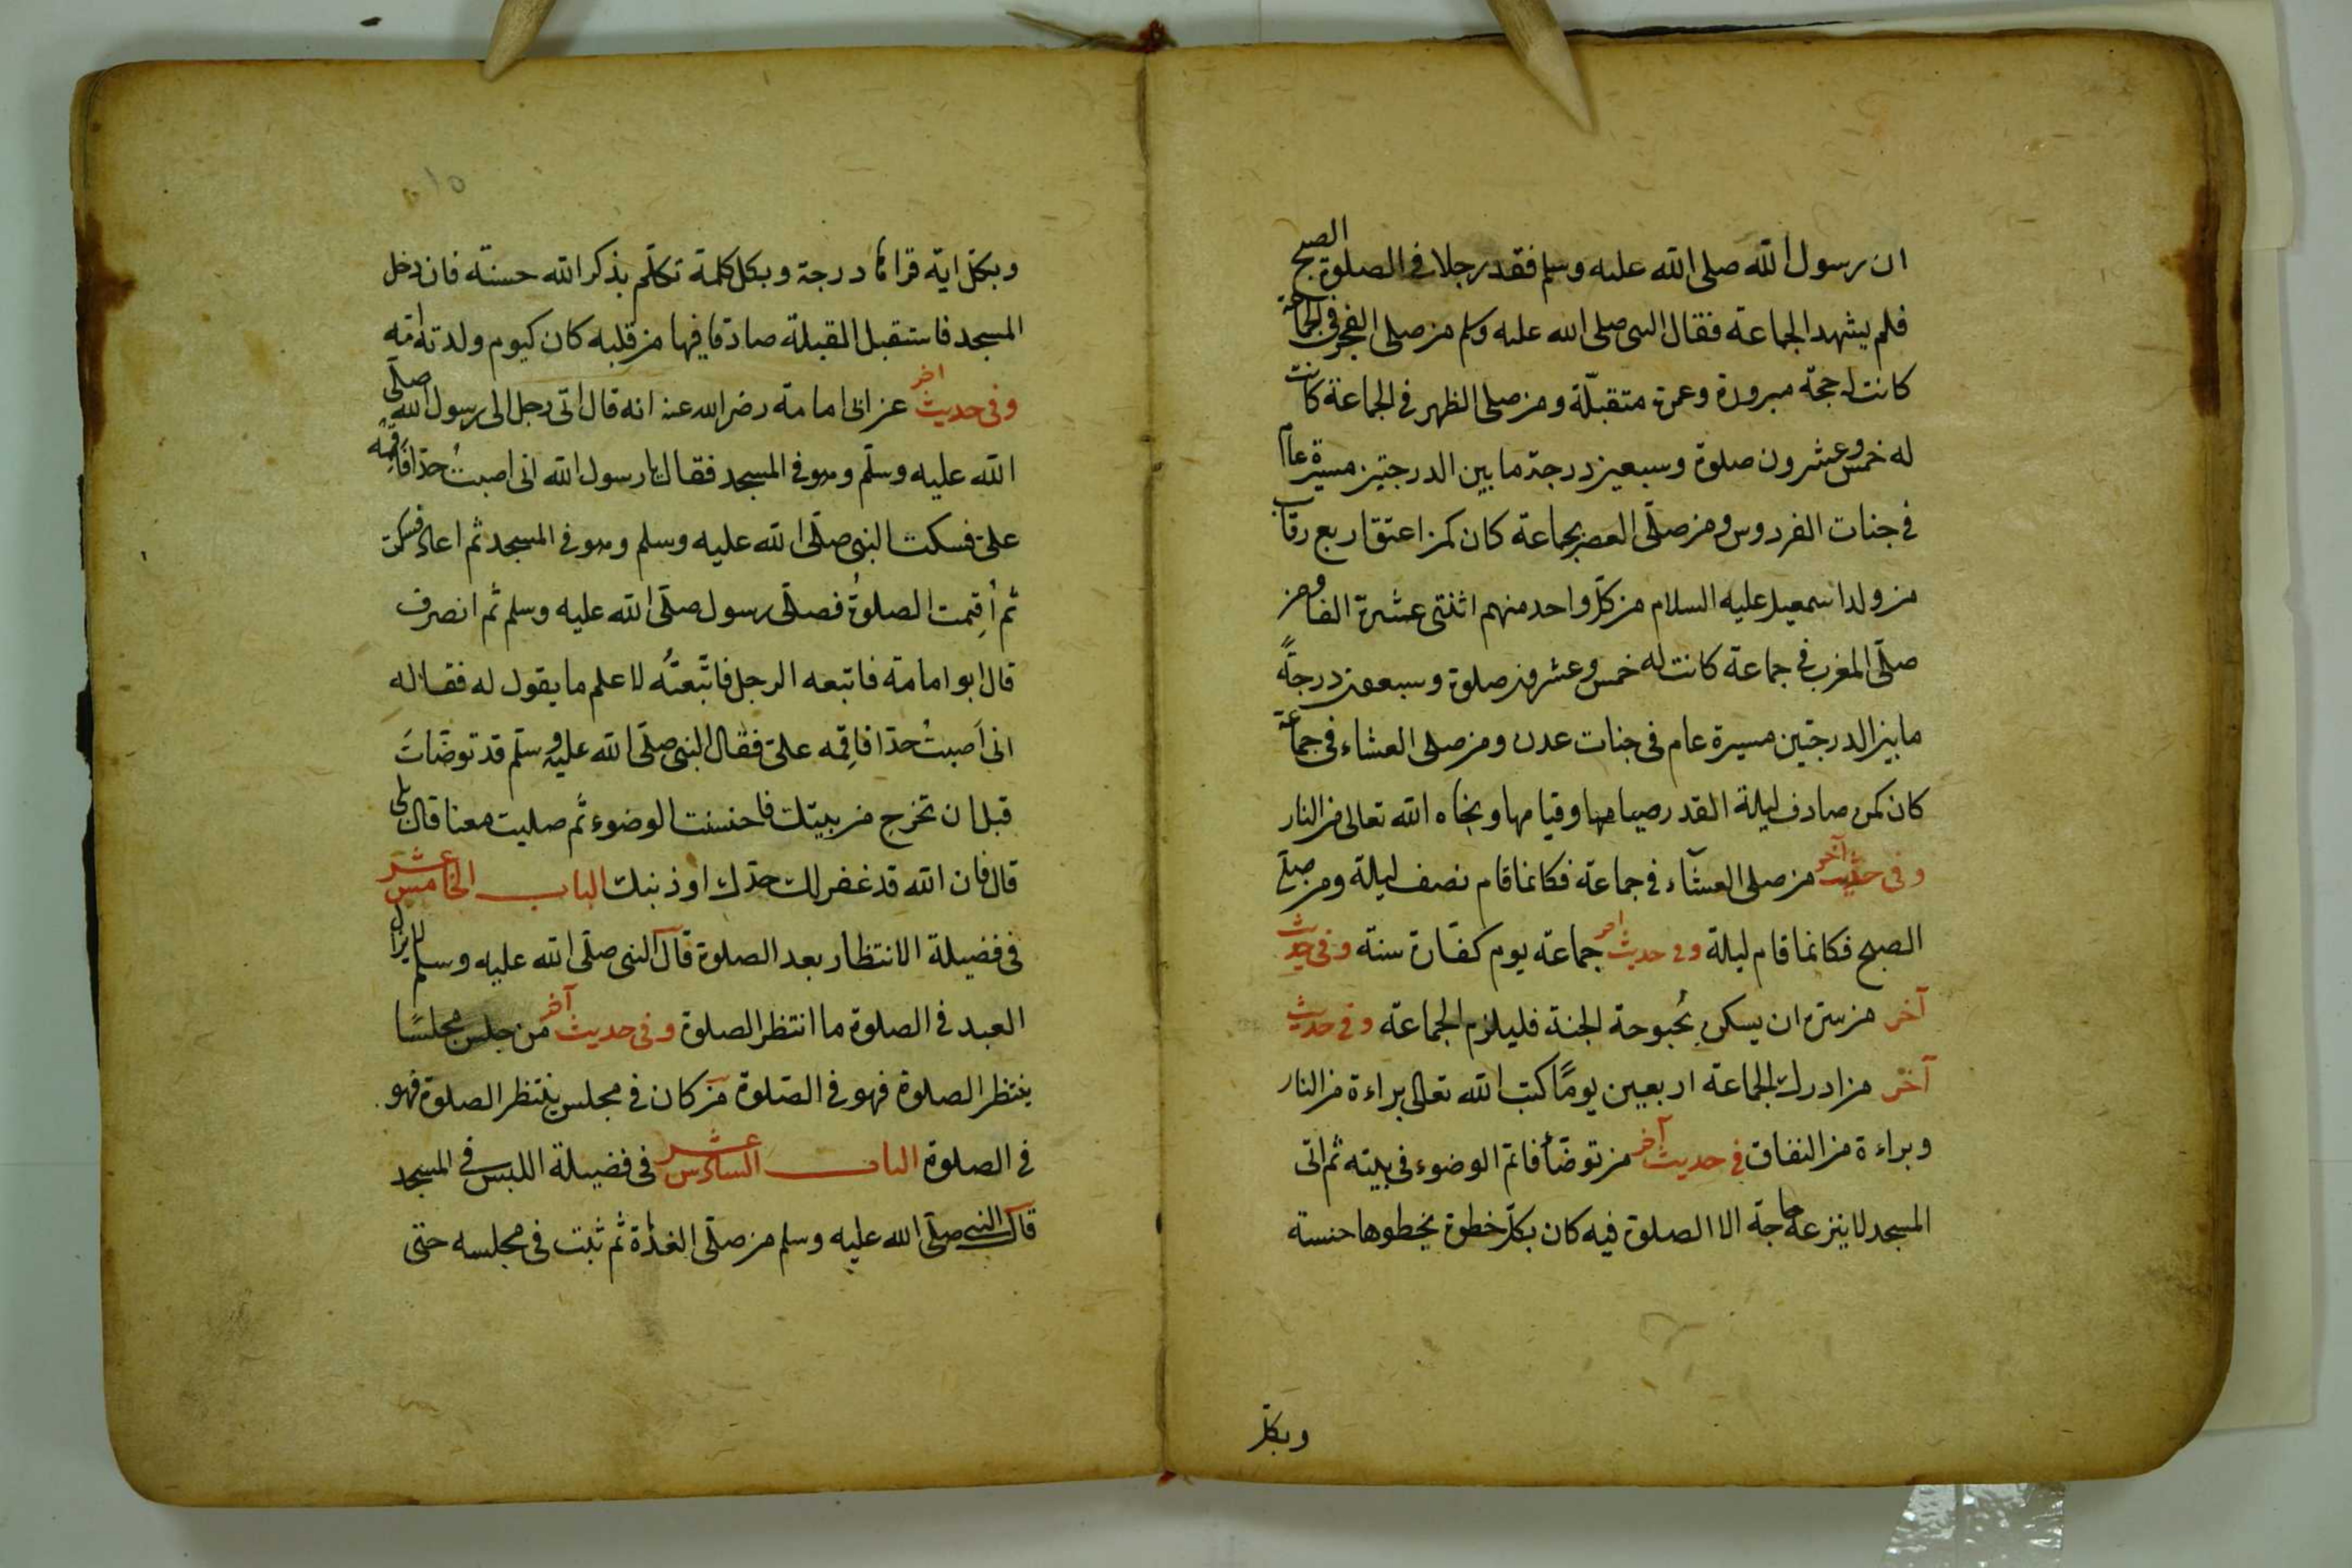 ان رسول الله صلى الله عليه وسلم فقد رجلا في الصلوة الصبح
فلم يشهد الجماعة فقال النبي صلى الله عليه وسلم من صلى الفجر في الجماعة
كانت له حجة مبرورة وعمرة متقبلة ومن صلى الظهر في الجماعة كانت
له خمس وعشرون صلوة وسبعين درجة ما بين الدرجتين مسيرة عام
في جنات الفردوس ومن صلى العصر بجماعة كان كمن اعتق اربع رقاب
من ولد اسمعيل عليه السلام من كل واحد منهم اثنتى عشرة الفا ومن
صلى المغرب في جماعة كانت له خمس وعشرون صلوة وسبعون درجةً
ما بين الدرجتين مسيرة عام في جنات عدن ومن صلى العشاء في جماعة
كان كمن صادف ليلة القدر صيامها وقيامها ونجاه الله تعالى من النار
وفي حديث آخر من صلى العشاء في جماعة فكانما قام نصف ليلة ومن صلى
الصبح فكانما قام ليلة وفي حديث اخر جماعة يوم كفارة سنة وفي حديث
آخر من سره ان يسكن بُحبوحة الجنة فليلزم الجماعة وفي حديث
آخر من ادرك الجماعة اربعين يومًا كتب الله تعالى براءة من النار
وبراءة من النفاق في حديث آخر من توضأ فاتم الوضوء في بيته ثم اتى
المسجد لا ينزعه حاجة الا الصلوة فيه كان بكل خطوة يخطوها حسنة
وبكل
١٥
وبكل اية قراها درجة وبكل كلمة تكلم بذكر الله حسنة فان دخل
المسجد فاستقبل القبلة صادقا فيها من قلبه كان كيوم ولدته امه
وفي حديث اخر عن ابي امامة رضي الله عنه انه قال اتى رجل الى رسول الله صلى
الله عليه وسلم وهو في المسجد فقال يا رسول الله اني اصبتُ حدّا فَاَقِمْه
عليّ فسكت النبي صلى الله عليه وسلم وهو في المسجد ثم اعاد فسكت
ثم أُقِيمت الصلوةُ فصلى رسول صلى الله عليه وسلم ثم انصرف
قال ابو امامة فاتبعه الرجل فاتّبعتُه لاعلم ما يقول له فقال له
اني اَصبتُ حدّا فاقِمْه عليّ فقال النبي صلى الله عليه وسلم قد توضّاتَ
قبل ان تخرج من بيتك فاحسنت الوضوء ثم صليت معنا قال بلى
قال فان الله قد غفر لك حدّك او ذنبك الباب الخامس عشر
في فضيلة الانتظار بعد الصلوة قال النبي صلى الله عليه وسلم لا يزال
العبد في الصلوة ما انتظر الصلوة وفي حديث آخر من جلس مجلسًا
ينتظر الصلوة فهو في الصلوة من كان في مجلس ينتظر الصلوة فهو
في الصلوة الباب السادس عشر في فضيلة اللبس في المسجد
قال النبي صلى الله عليه وسلم من صلى الغداة ثم ثبت في مجلسه حتى